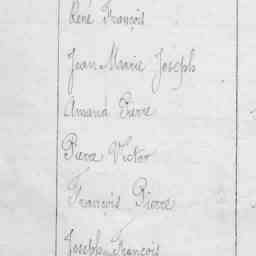 René François
Jean Marie Joseph
Amand Pierre
Pierre Victor
François Pierre
Joseph François